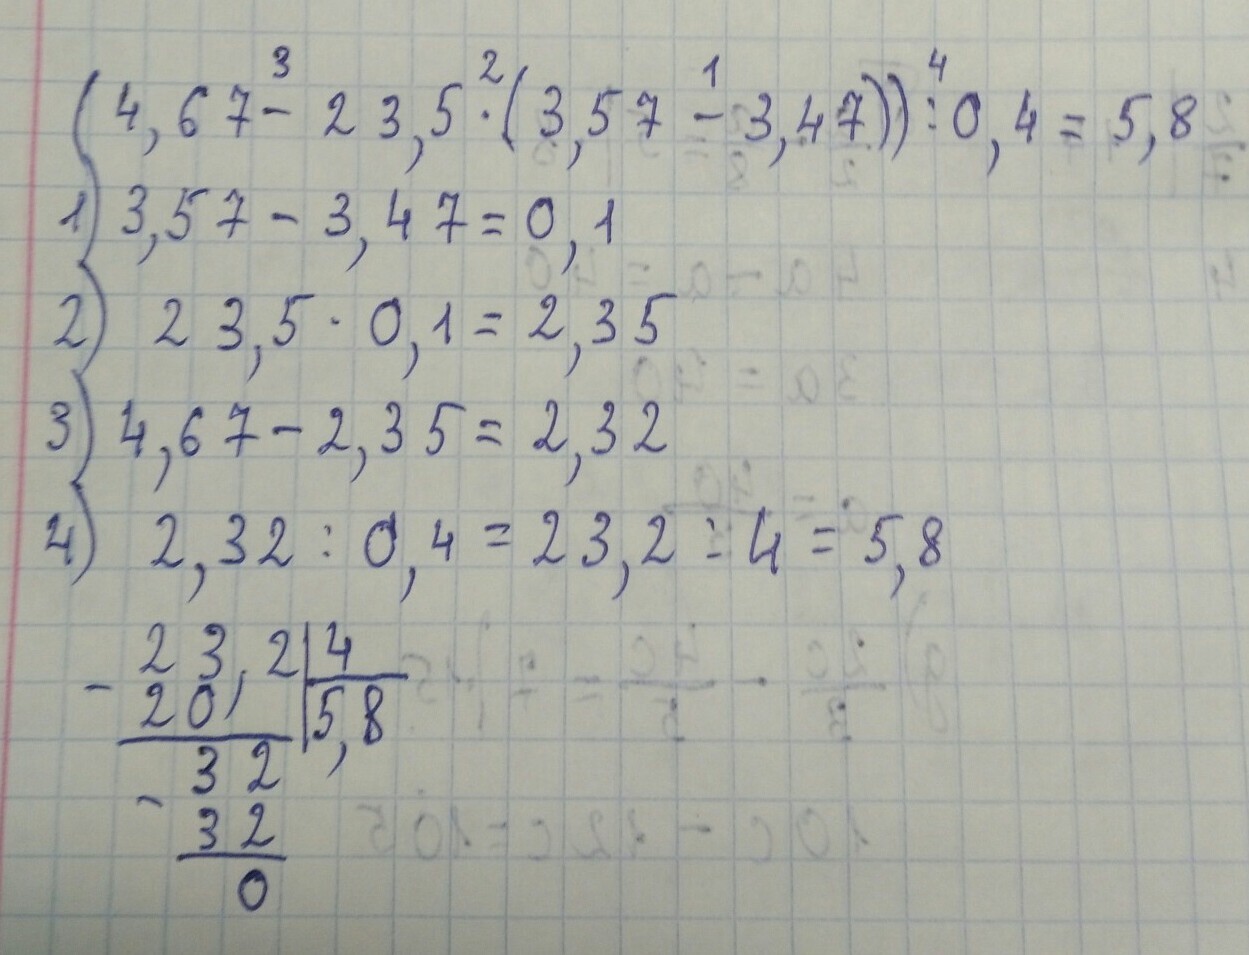 3 2 1 4
(4,67 - 23,5 · (3,57 - 3,47)) : 0,4 = 5,8
1) 3,57 - 3,47 = 0,1
2) 23,5 · 0,1 = 2,35
3) 4,67 - 2,35 = 2,32
4) 2,32 : 0,4 = 23,2 : 4 = 5,8
- 23,2 | 4
20, | 5,8
- 32
32
0